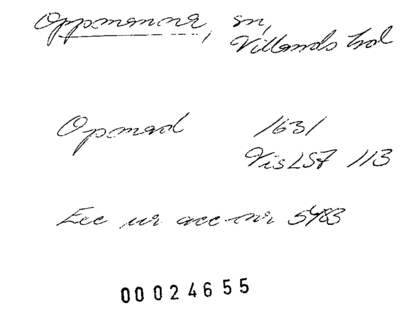 Oppmanna, sn,
Villands hd
Opmad 1631
VisLSF 113
Exc ur acc-nr 5983
00024655